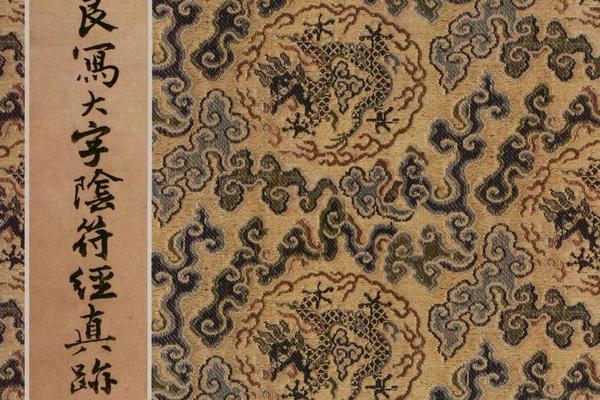 良寫大字陰符經真跡